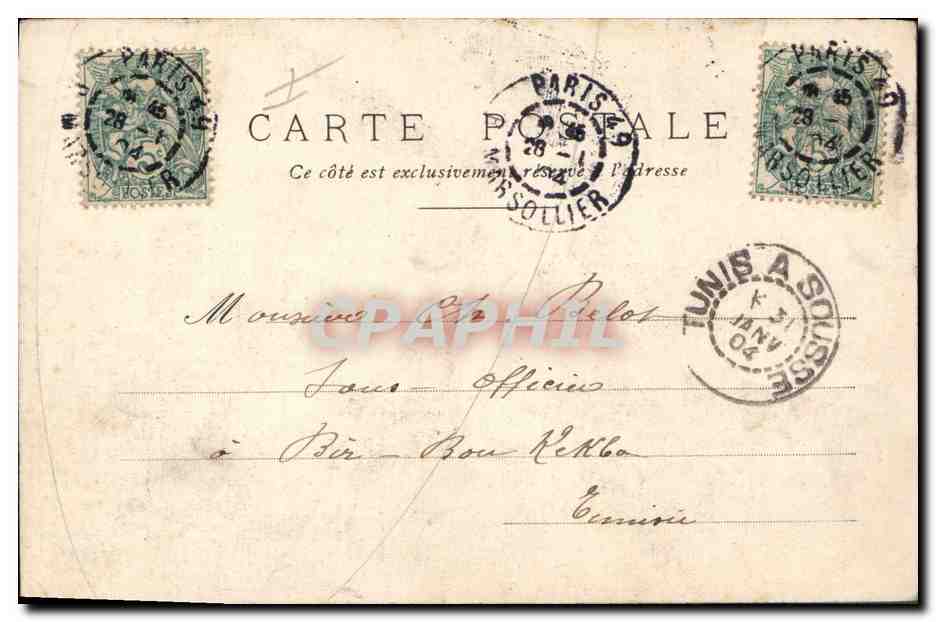 PARIS 49
28 -1
04
POSTES
PARIS 49
28 -1
MARSOLLIER
PARIS 49
28 -1
04
MARSOLLIER
CARTE POSTALE
Ce côté est exclusivement réservé à l'adresse
TUNIS A SOUSSE
31
JANV
04
Monsieur Ch Belot
CPAPHIL
Sous-Officier
à Bir-Bou Rekba
Tunisie